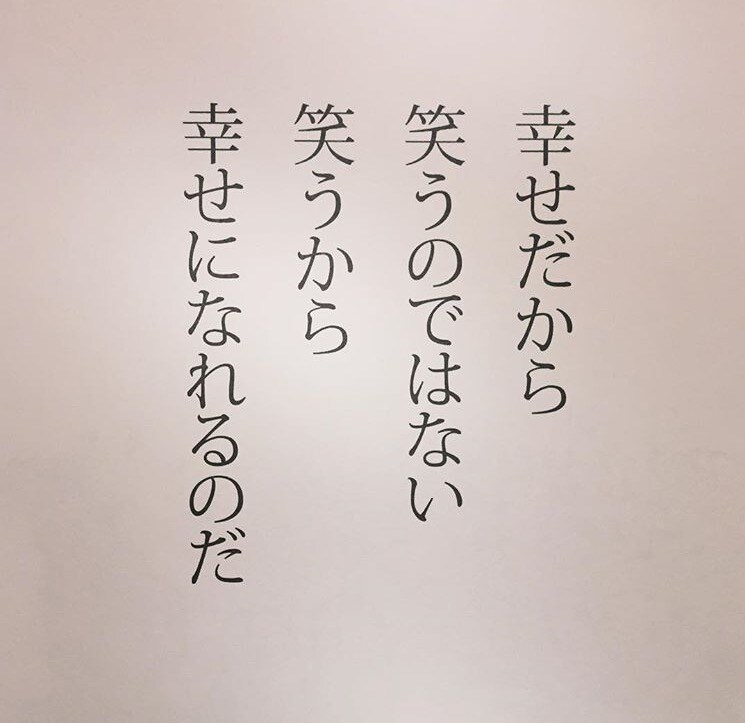 幸せだから
笑うのではない
笑うから
幸せになれるのだ